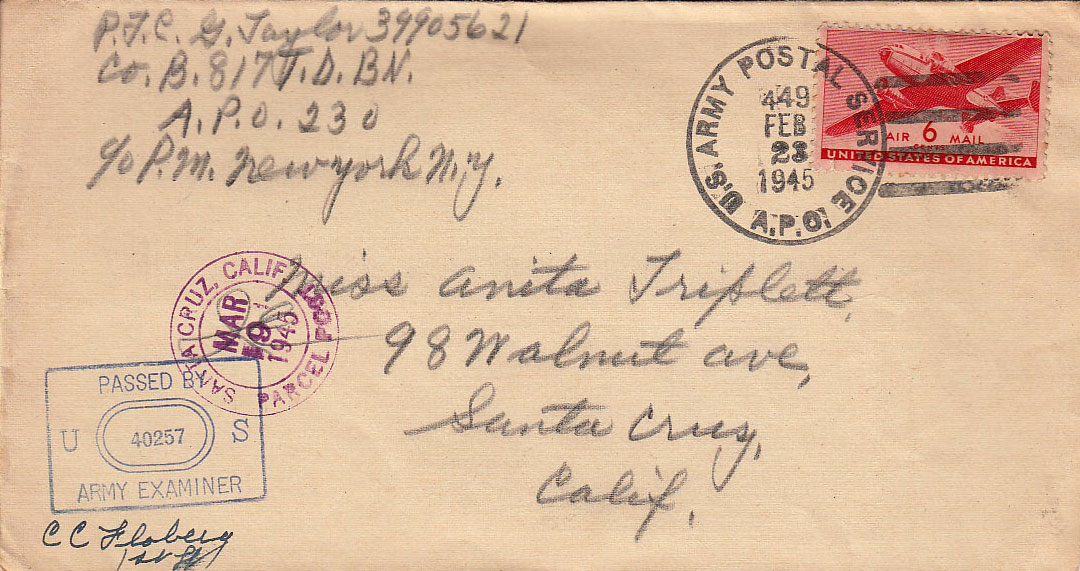 P.F.C. G. Taylor 39905621
Co. B. 817 T. D. BN.
A. P. O. 230
c/o P.M. New york N.Y.
U.S. ARMY POSTAL SERVICE
449
FEB
23
1945
A.P.O.
AIR 6 MAIL
CENTS
UNITED STATES OF AMERICA
Miss Anita Triplett
98 Walnut ave,
Santa Cruz,
Calif.
SANTA CRUZ, CALIF.
MAR
9
1945
PARCEL POST
PASSED BY
U 40257 S
ARMY EXAMINER
C C Floberg
1st Lt